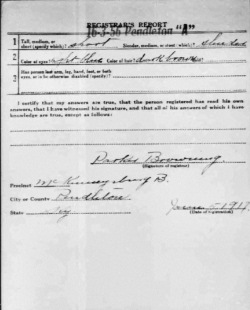 REGISTRAR'S REPORT
16-3-36 Pendleton "A"
1 Tall, medium, or short (specify which)? short Slender, medium, or stout (which)?
2 Color of eyes? Color of hair? dark brown
3 Has person lost arm, leg, hand, foot, or both
eyes, or is he otherwise disabled (specify)?
I certify that my answers are true, that the person registered has read his own
answers, that I have witnessed his signature, and that all of his answers of which I
have knowledge are true, except as follows:
Browning
(Signature of registrar)
Precinct B.
City or County Pendleton
State Ky June 5 1917
(Date of registration)